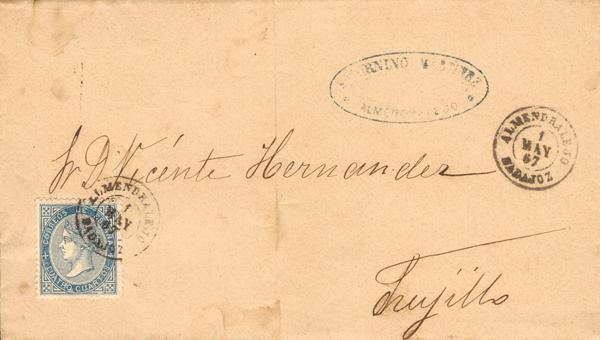 SATURNINO MARTINEZ
ALMENDRALEJO
ALMENDRALEJO
1
MAY
67
BADAJOZ
Sr D Vicénte Hernandez
ALMENDRALEJO
1
MAY
67
BADAJOZ
CORREOS DE ESPAÑA
CUATRO CUARTOS
Trujillo